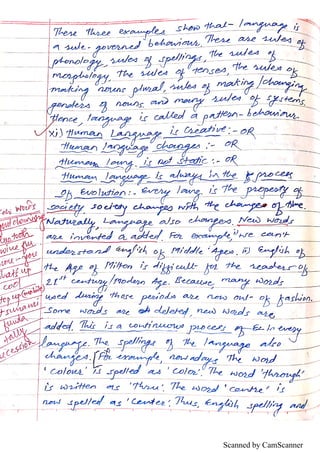 These three examples show that - language is
a rule-governed behaviour. These are rules of
phonology, rules of spellings, the rules of
morphology, the rules of tenses, the rules of
making nouns plural, rules of making/changing
genders of nouns and many rules of systems.
Hence, language is called a pattern-behaviour.
xi) Human Language is Creative :- OR
Human Language changes :- OR
Human lang. is not static :- OR
Human language is always in the process
of Evolution :- Every lang. is the property of
society society changes with the changes of time.
Naturally, Language also changes. New words
are invented & added. For example, i) we can't
understand English of Middle Ages. ii) English of
the Age of Milton is difficult for the readers of
21st century/Modern Age. Because, many words
used during these periods are now out of fashion.
Some words are deleted, new words are
added. This is a continuous process of in every
language. The spellings of the language also
changes. For example, nowadays The word
'colour' is spelled as 'color'. The word 'through'
is written as 'thru'. The word 'centre' is
now spelled as 'center'. Thus, English spelling and
words
wine
me - you
cup
tsunami
Scanned by CamScanner